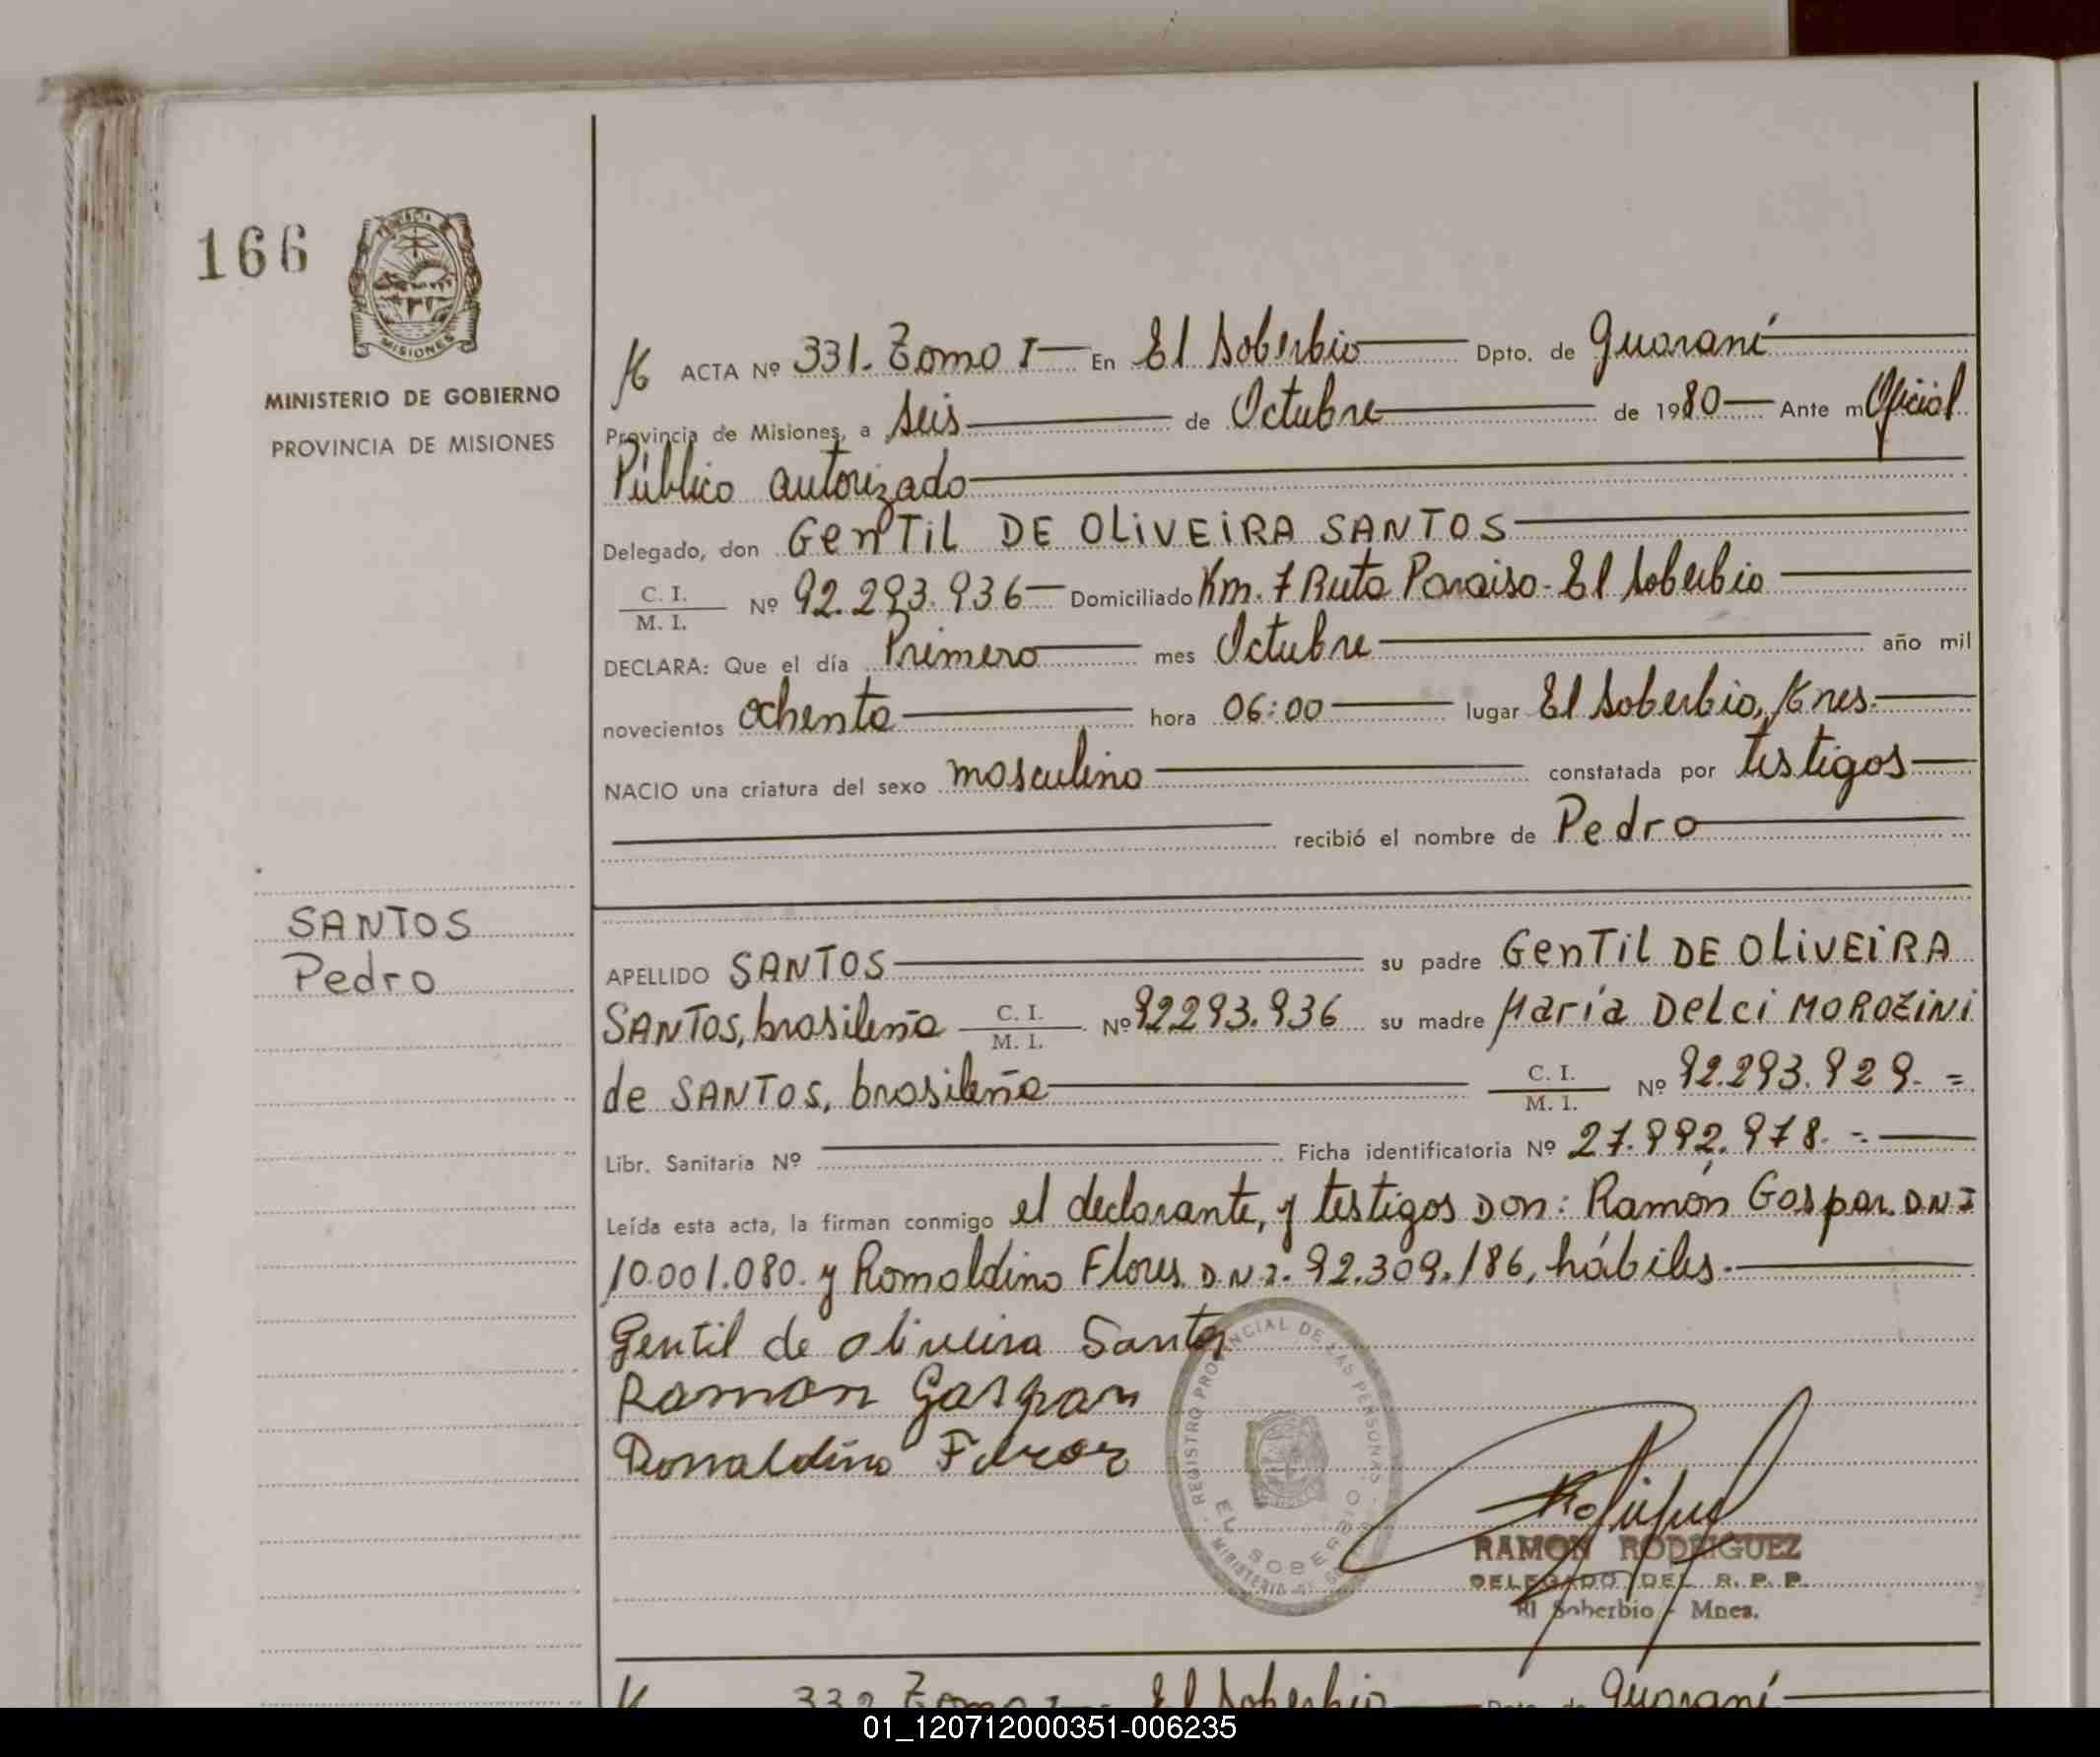 166
MISIONES
MINISTERIO DE GOBIERNO
PROVINCIA DE MISIONES
SANTOS
Pedro
ACTA Nº 331. Tomo I En El Soberbio Dpto. de Guaraní
Provincia de Misiones, a seis de Octubre de 1980 Ante mí Oficial
Público autorizado
Delegado, don GenTiL DE OLiVEiRA SANTOS
C. I.
M. I. Nº 92.293.936 Domiciliado Km. 7 Ruta Paraiso - El Soberbio
DECLARA: Que el día Primero mes Octubre año mil
novecientos ochenta hora 06:00 lugar El Soberbio, Mnes.
NACIO una criatura del sexo masculino constatada por testigos
recibió el nombre de Pedro
APELLIDO SANTOS su padre GenTiL DE OLiVEiRA
SANTOS, brasileña C. I. M. I. Nº 92293.936 su madre María DeLci MOROZiNi
de SANTOS, brasileña C. I. M. I. Nº 92.293.929. =
Libr. Sanitaria Nº Ficha identificatoria Nº 27.992.978. =
Leída esta acta, la firman conmigo el declarante, y testigos Don: Ramón Gaspar. D.N.I
10.001.080. y Romaldino Flores D.N.I. 92.309.186, hábiles.
Gentil de oliveira Santos
Ramon Gaspar
Romaldino
REGISTRO PROVINCIAL DE LAS PERSONAS
EL SOBERBIO
RAMON RODRIGUEZ
DELEGADO DEL R. P. P.
El Soberbio - Mnes.
332 Tomo I El Soberbio Dpto. de Guaraní
01_120712000351-006235